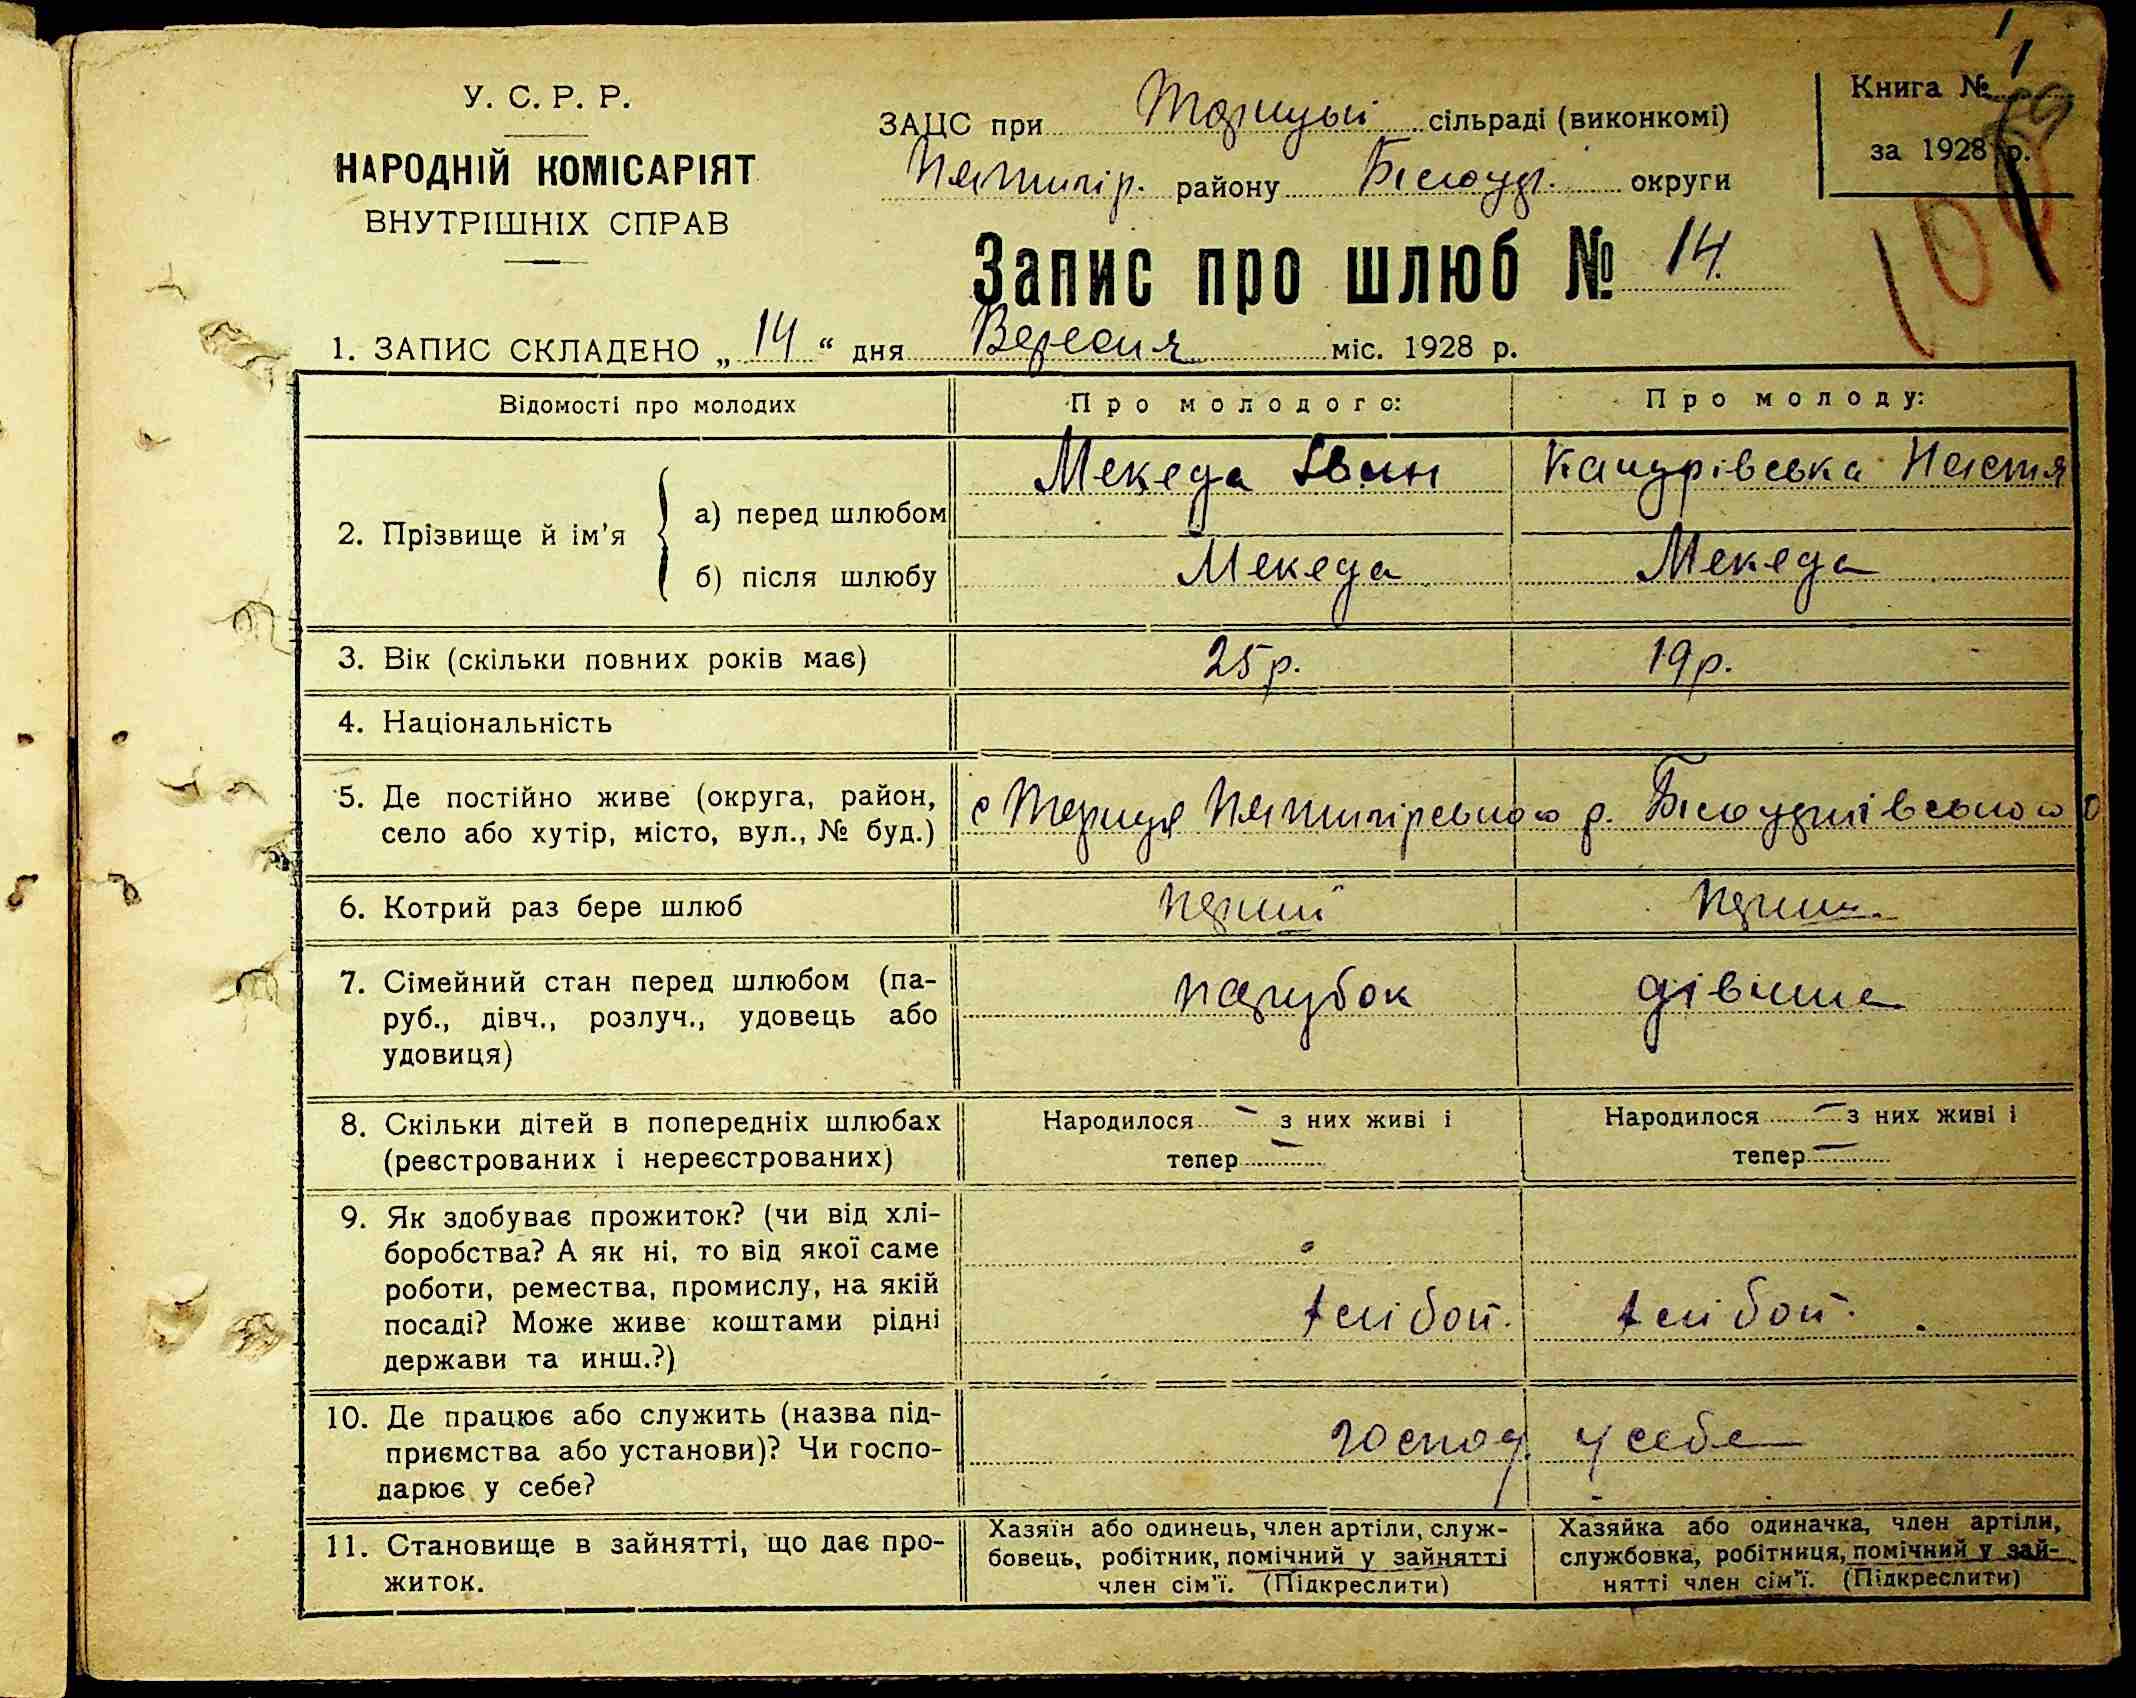 У. С. Р. Р.
НАРОДНІЙ КОМІСАРІЯТ
ВНУТРІШНІХ СПРАВ
ЗАЦС при Торицькій сільраді (виконкомі)
Пятигір. району Білоцер. округи
Книга №
за 1928 р.
Запис про шлюб № 14.
1. ЗАПИС СКЛАДЕНО „ 14 “ дня Вересня міс. 1928 р.
Відомості про молодих
Про молодого:
Про молоду:
2. Прізвище й ім'я
а) перед шлюбом
Мекеда Іван
Качурівська Настя
б) після шлюбу
Мекеда
Мекеда
3. Вік (скільки повних років має)
25 р.
19 р.
4. Національність
5. Де постійно живе (округа, район,
село або хутір, місто, вул., № буд.)
с Териця Пятигірського р. Білоцерківського о
6. Котрий раз бере шлюб
перший
перш.
7. Сімейний стан перед шлюбом (па-
руб., дівч., розлуч., удовець або
удовиця)
парубок
дівчина
8. Скільки дітей в попередніх шлюбах
(реєстрованих і нереєстрованих)
Народилося – з них живі і
тепер –
Народилося – з них живі і
тепер –
9. Як здобуває прожиток? (чи від хлі-
боробства? А як ні, то від якої саме
роботи, ремества, промислу, на якій
посаді? Може живе коштами рідні
держави та инш.?)
хлібоп.
хлібоп.
10. Де працює або служить (назва під-
приємства або установи)? Чи госпо-
дарює у себе?
господ. у себе
11. Становище в зайнятті, що дає про-
житок.
Хазяїн або одинець, член артіли, служ-
бовець, робітник, помічний у зайнятті
член сім'ї. (Підкреслити)
Хазяйка або одиначка, член артіли,
службовка, робітниця, помічний у зай-
нятті член сім'ї. (Підкреслити)